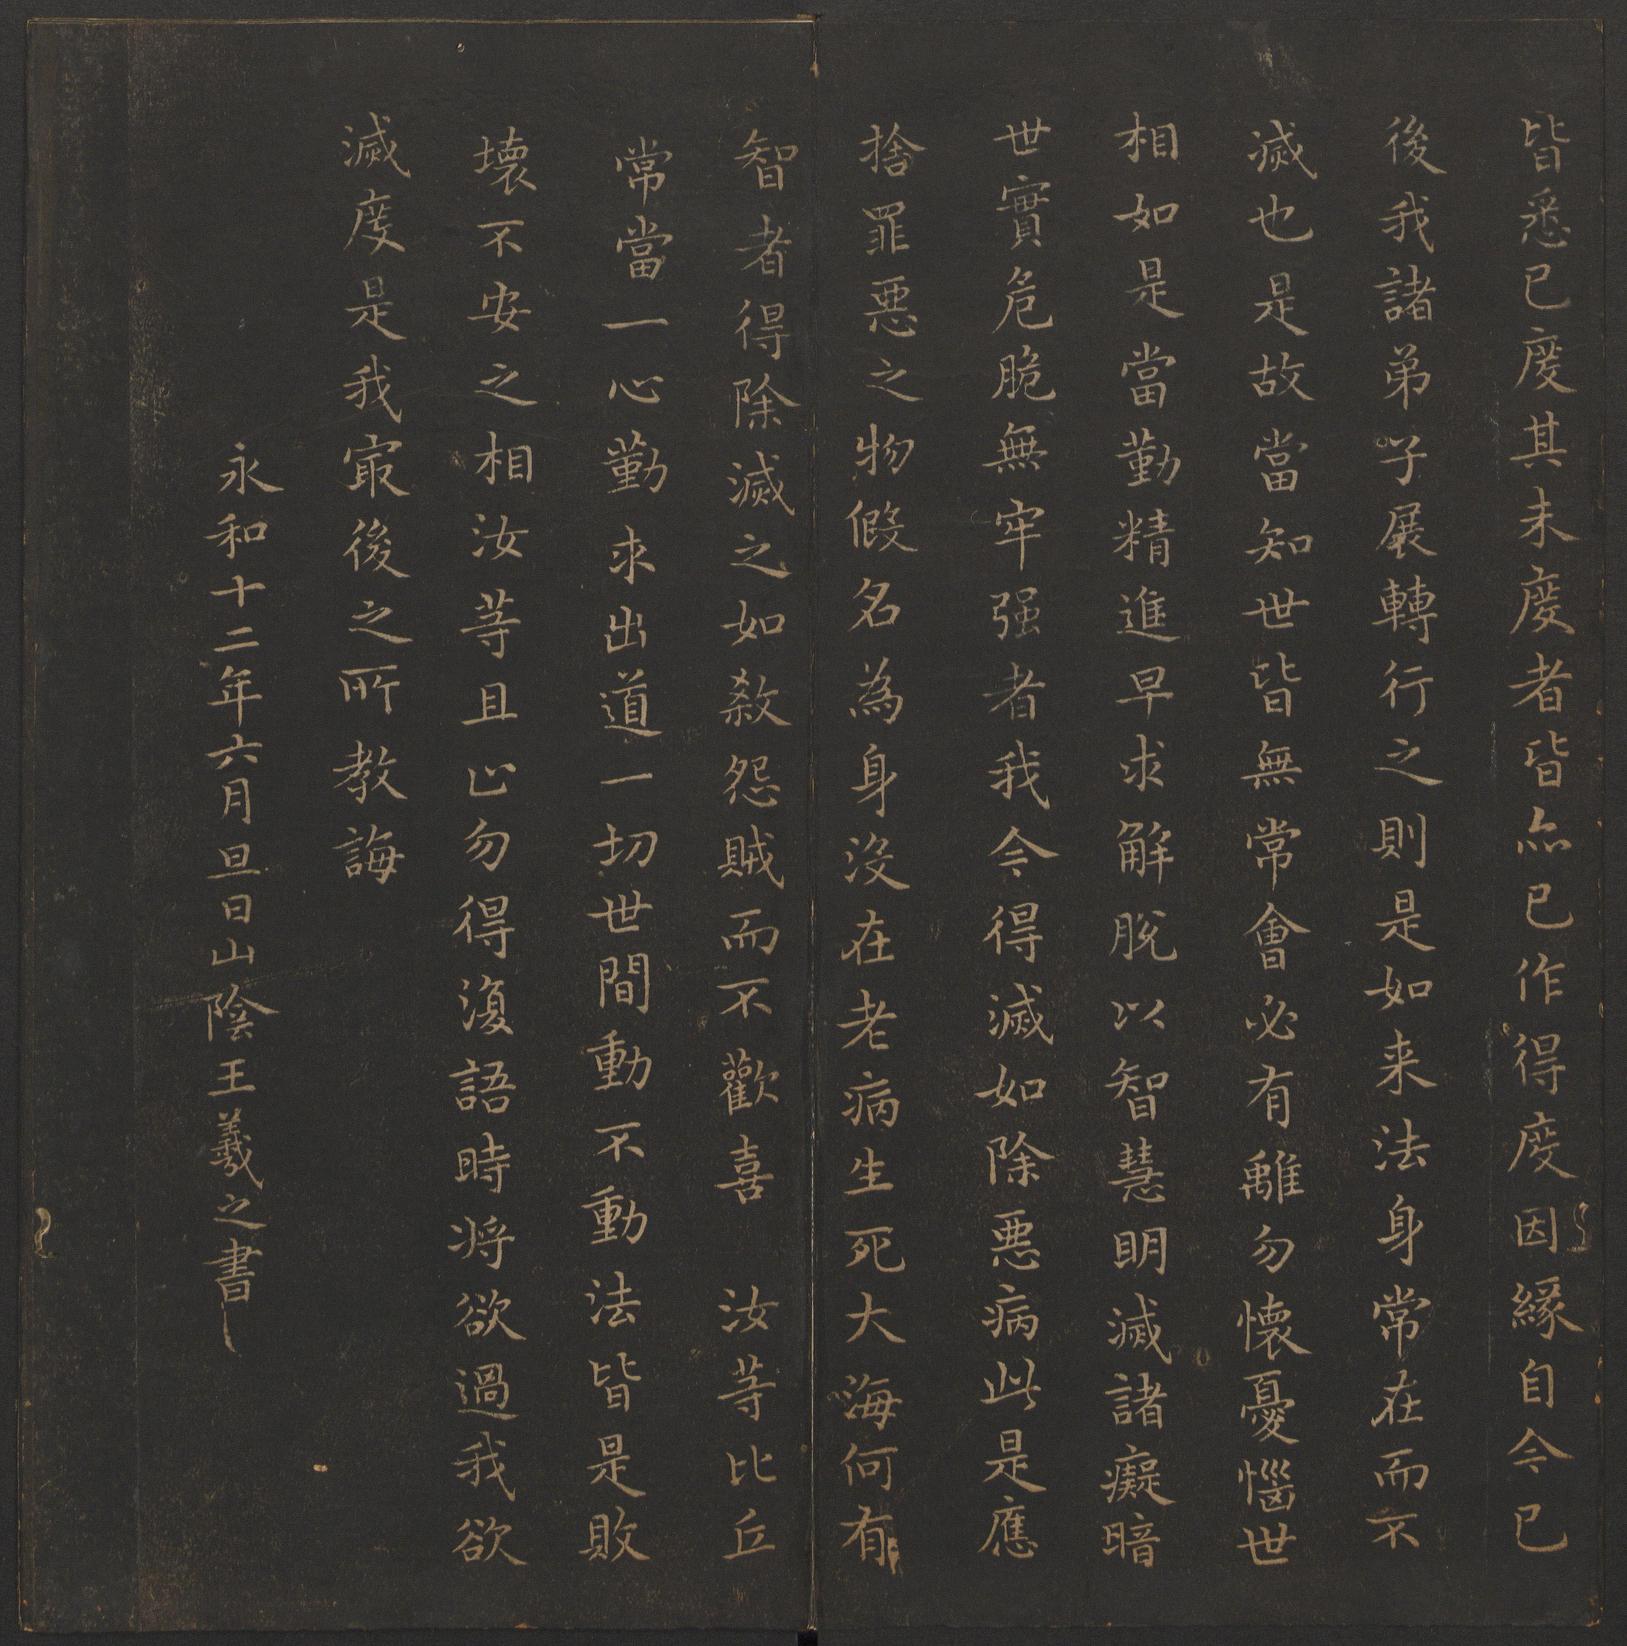 皆悉已度其未度者皆亦已作得度因緣自今已
後我諸弟子展轉行之則是如来法身常在而不
滅也是故當知世皆無常會必有離勿懷憂惱世
相如是當勤精進早求解脫以智慧明滅諸癡暗
世實危脆無牢强者我今得滅如除惡病此是應
捨罪惡之物假名為身沒在老病生死大海何有
智者得除滅之如殺怨賊而不歡喜 汝等比丘
常當一心勤求出道一切世間動不動法皆是敗
壞不安之相汝等且止勿得復語時将欲過我欲
滅度是我最後之所教誨
永和十二年六月旦日山陰王羲之書